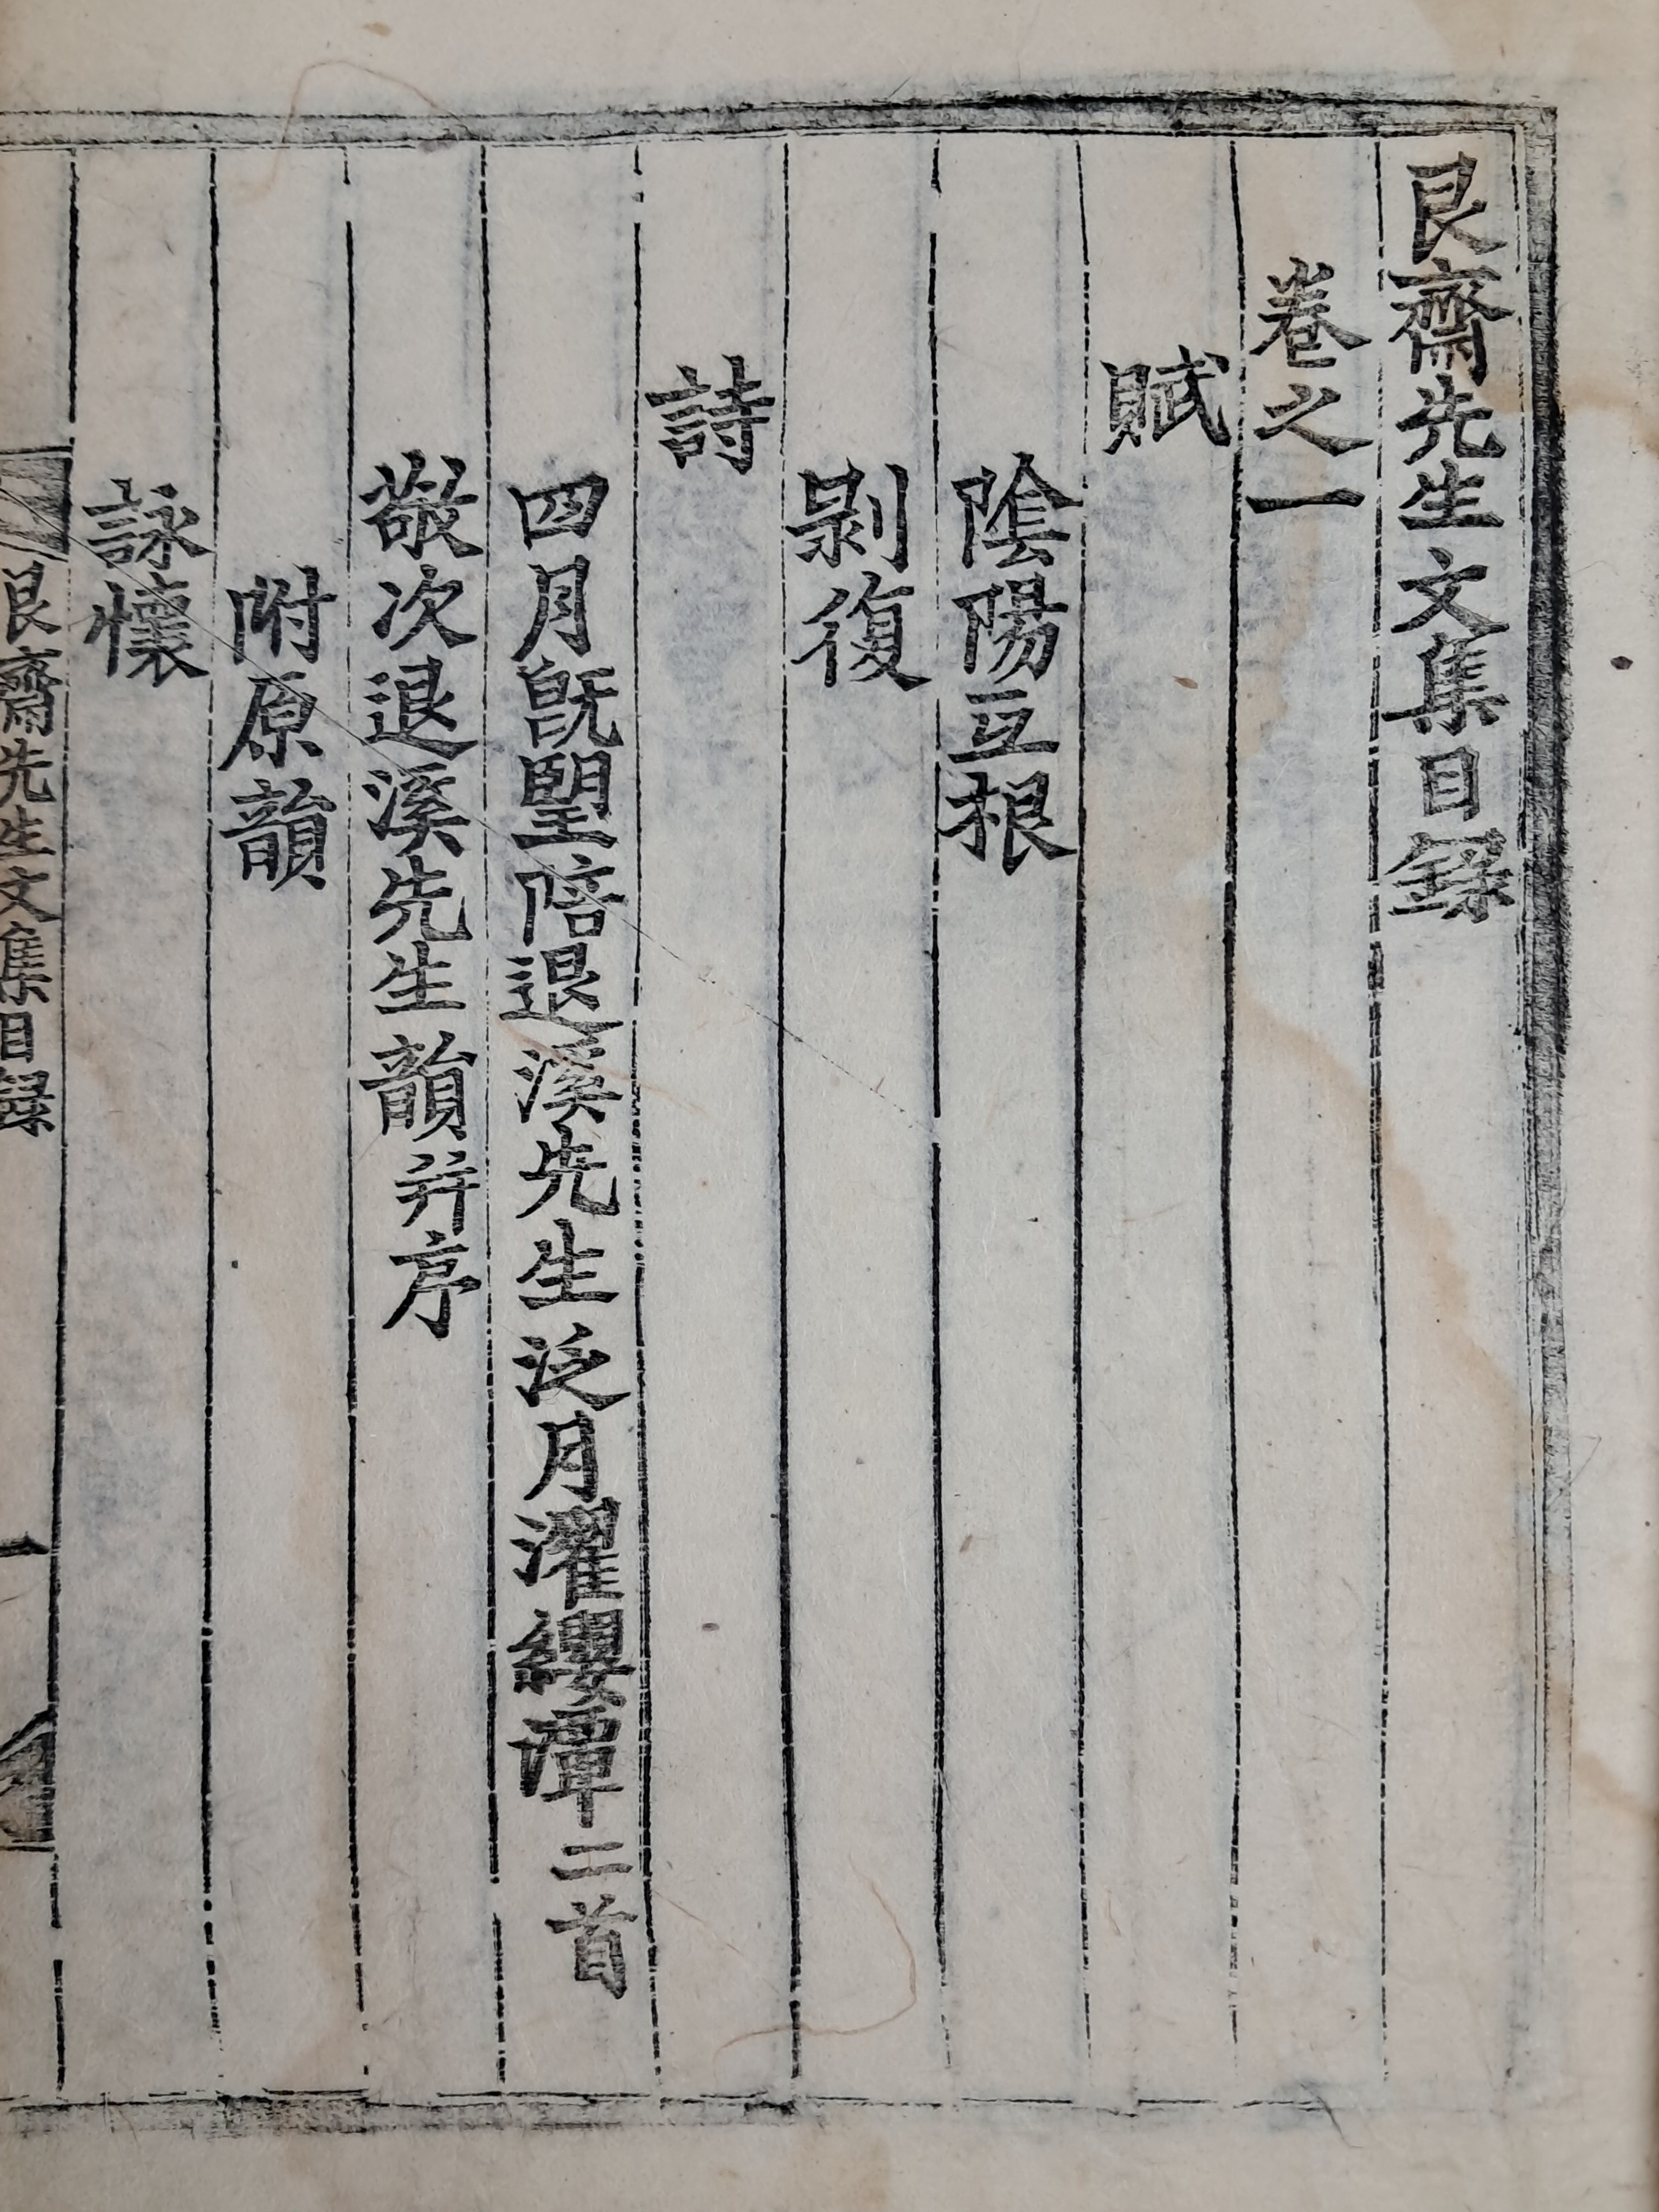 艮齋先生文集目錄
卷之一
賦
陰陽互根
剝復
詩
四月旣望陪退溪先生泛月濯纓潭二首
敬次退溪先生韻并序
附原韻
詠懷
艮齋先生文集目錄
一